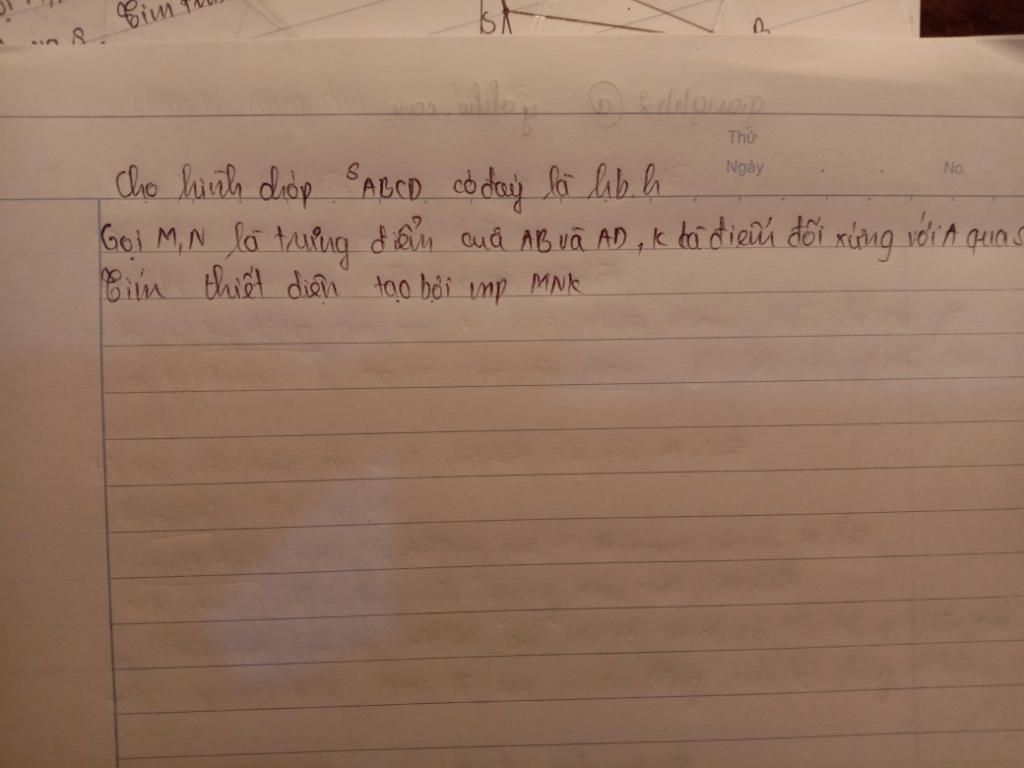 Tìm
S
Thứ
Ngày
No.
Cho hình chóp SABCD có đáy là hb.h
Gọi M,N là trung điểm của AB và AD, K là điểm đối xứng với A qua S
Tìm thiết diện tạo bởi mp MNK